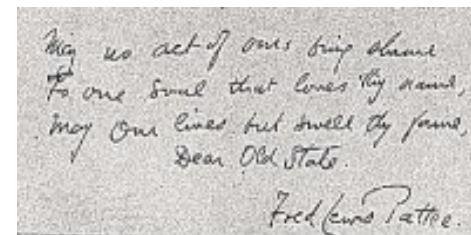 May no act of ours bring shame
To one soul that loves thy name,
May our lives but swell thy fame,
Dear Old State.
Fred Lewis Pattee.